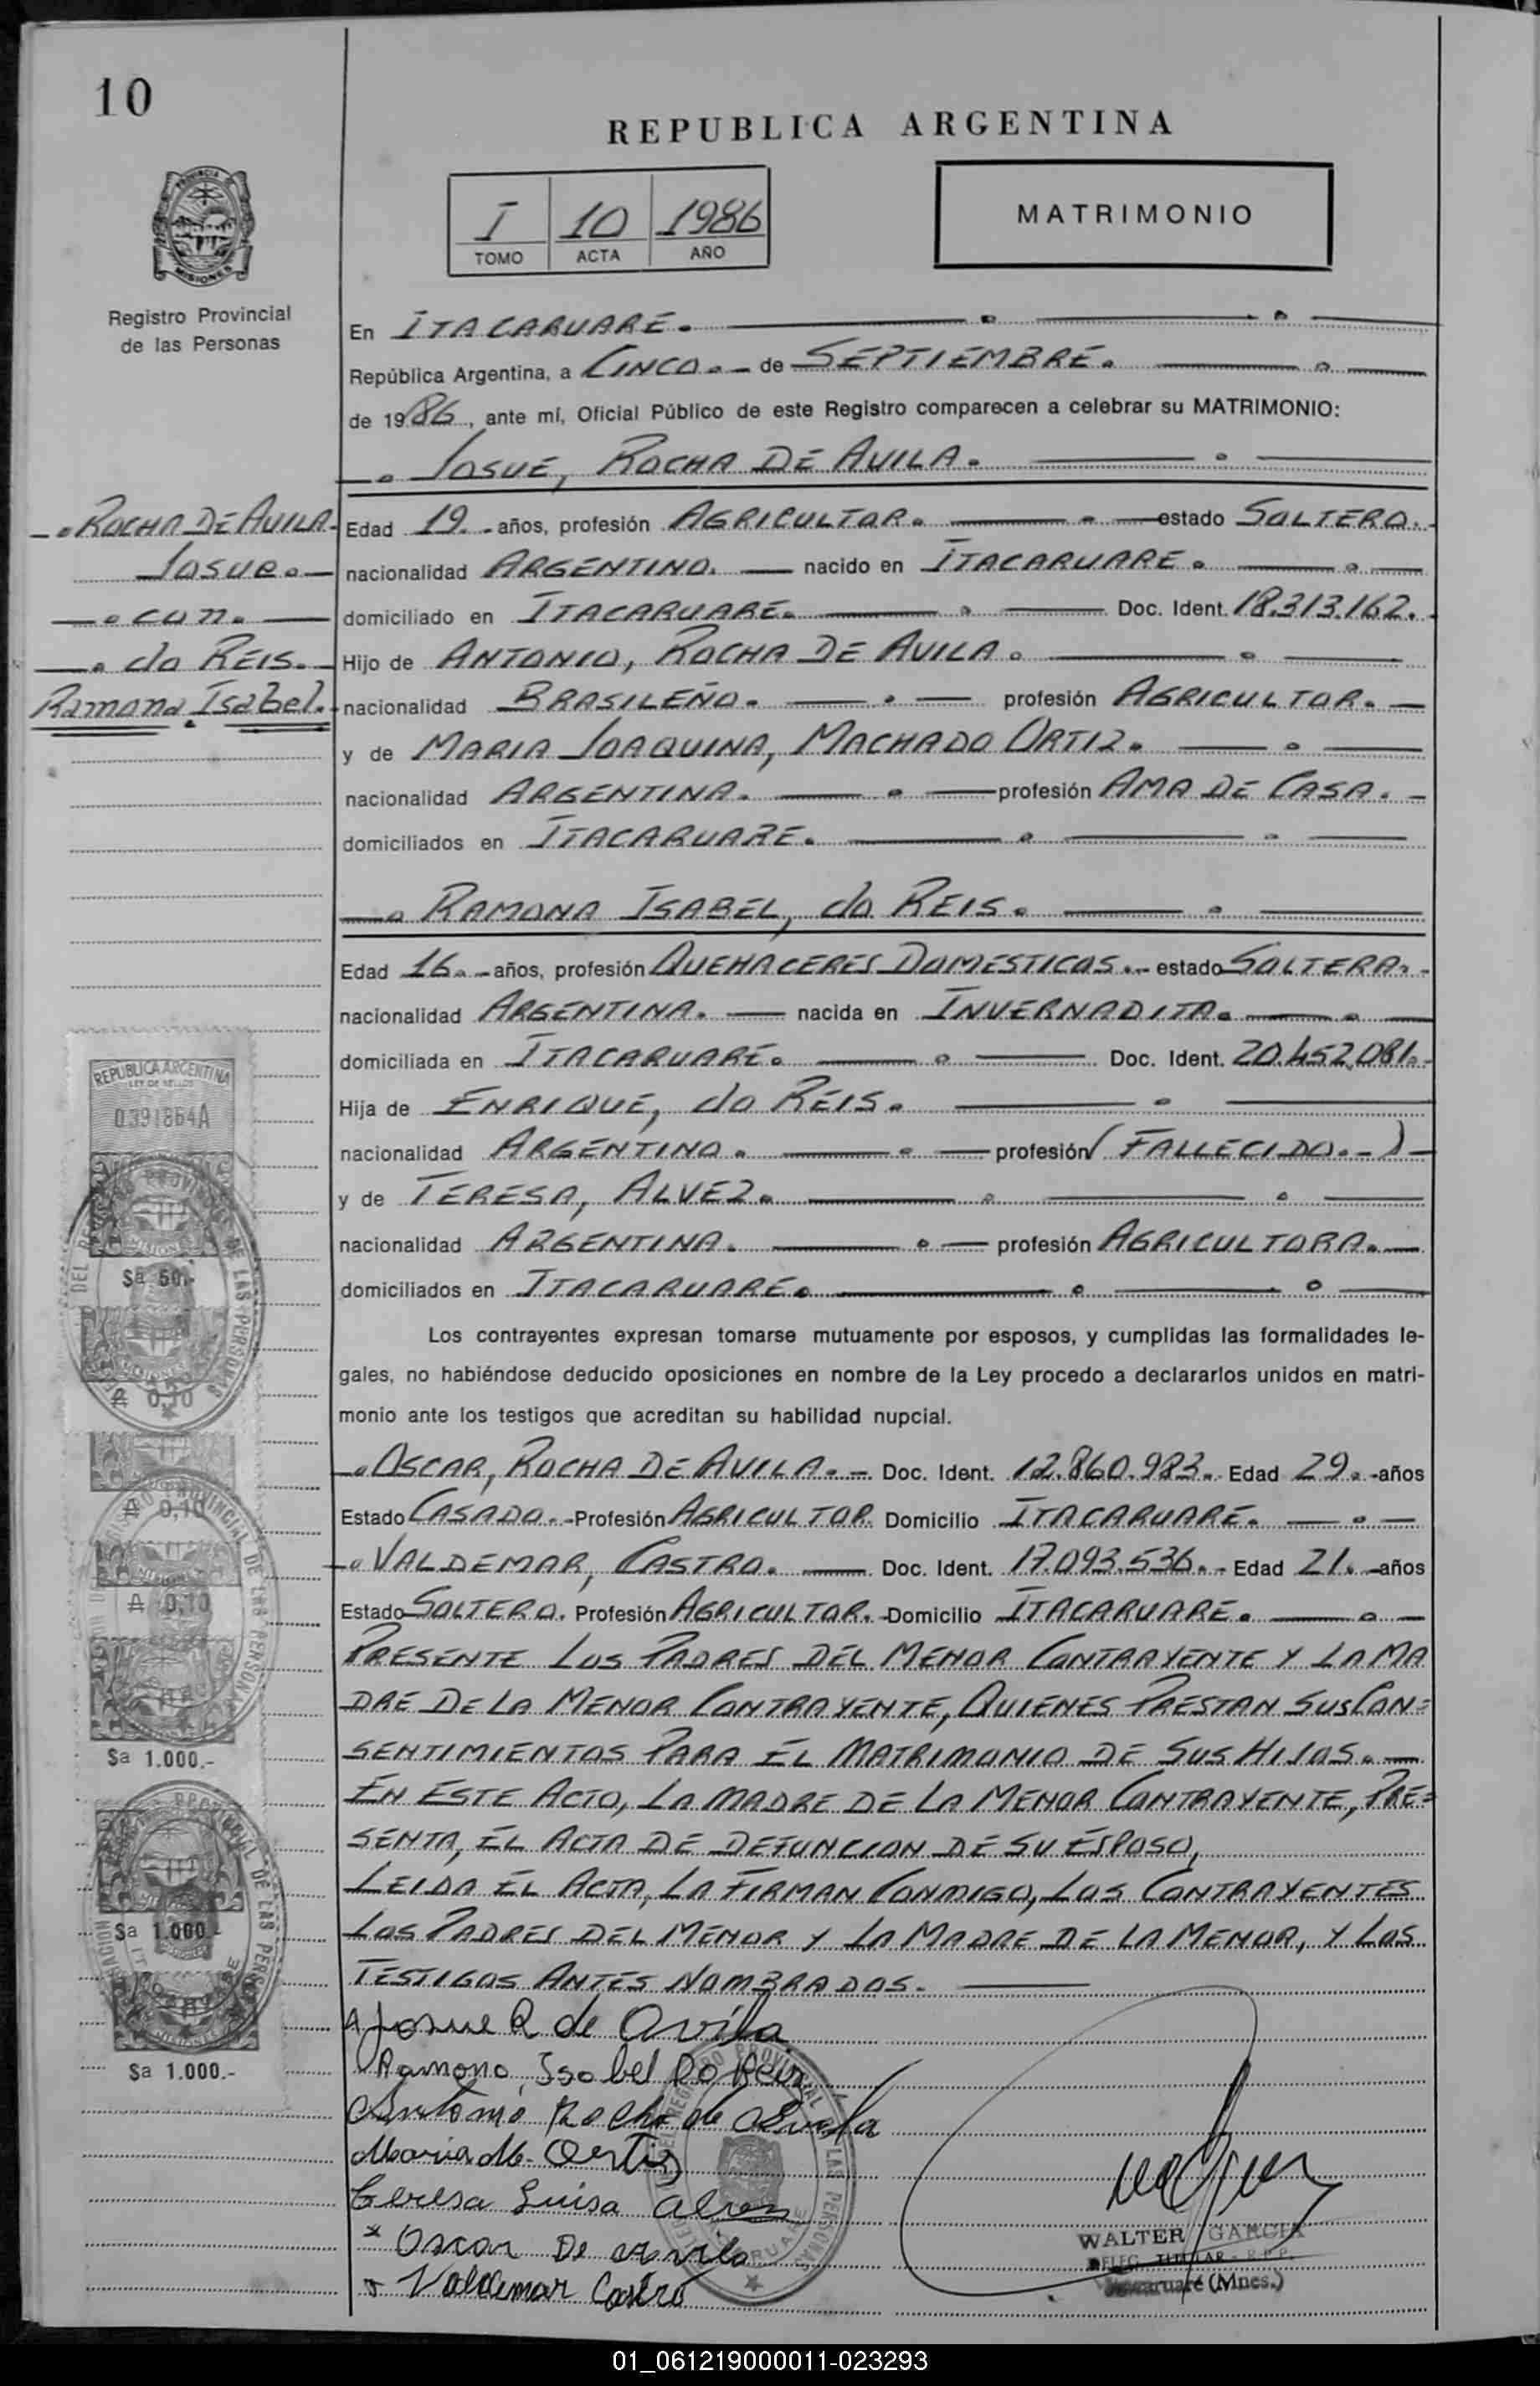 10
REPUBLICA ARGENTINA
I 10 1986
TOMO ACTA AÑO
MATRIMONIO
PROVINCIA DE
MISIONES
Registro Provincial
de las Personas
En ITACARUARE.
República Argentina, a CINCO.- de SEPTIEMBRE.
de 1986, ante mí, Oficial Público de este Registro comparecen a celebrar su MATRIMONIO:
JOSUE, ROCHA DE AVILA.
ROCHA DE AVILA.
Josue.
con.
do REIS.
Ramona Isabel.
Edad 19.- años, profesión AGRICULTOR. estado SOLTERO.-
nacionalidad ARGENTINO. nacido en ITACARUARE.
domiciliado en ITACARUARE. Doc. Ident. 18.313.162.
Hijo de ANTONIO, ROCHA DE AVILA.
nacionalidad BRASILEÑO. profesión AGRICULTOR.
y de MARIA JOAQUINA, MACHADO ORTIZ.
nacionalidad ARGENTINA. profesión AMA DE CASA.-
domiciliados en ITACARUARE.
RAMONA ISABEL, do REIS.
Edad 16.- años, profesión QUEHACERES DOMESTICOS.- estado SOLTERA.-
nacionalidad ARGENTINA. nacida en INVERNADITA.
domiciliada en ITACARUARE. Doc. Ident. 20.452.081.-
Hija de ENRIQUE, do REIS.
nacionalidad ARGENTINO. profesión (FALLECIDO.-)
y de TERESA, ALVEZ.
nacionalidad ARGENTINA. profesión AGRICULTORA.
domiciliados en ITACARUARE.
Los contrayentes expresan tomarse mutuamente por esposos, y cumplidas las formalidades le-
gales, no habiéndose deducido oposiciones en nombre de la Ley procedo a declararlos unidos en matri-
monio ante los testigos que acreditan su habilidad nupcial.
OSCAR, ROCHA DE AVILA.- Doc. Ident. 12.860.983.- Edad 29.- años
Estado CASADO.- Profesión AGRICULTOR. Domicilio ITACARUARE.
VALDEMAR, CASTRO. Doc. Ident. 17.093.536.- Edad 21. años
Estado SOLTERO. Profesión AGRICULTOR. Domicilio ITACARUARE.
PRESENTE LOS PADRES DEL MENOR CONTRAYENTE Y LA MA
DRE DE LA MENOR CONTRAYENTE, QUIENES PRESTAN SUS CON=
SENTIMIENTOS PARA EL MATRIMONIO DE SUS HIJOS.
EN ESTE ACTO, LA MADRE DE LA MENOR CONTRAYENTE, PRE=
SENTA, EL ACTA DE DEFUNCION DE SU ESPOSO,
LEIDA EL ACTA, LA FIRMAN CONMIGO, LOS CONTRAYENTES
LOS PADRES DEL MENOR Y LA MADRE DE LA MENOR, Y LOS
TESTIGOS ANTES NOMBRADOS.
Josue R de Avila
Ramona Isabel Do Reis
Antonio Rocha de Avila
Maria M. Ortis
Teresa Luisa Alvez
Oscar De avila
Valdemar Castro
WALTER GARCIA
DELEG. TITULAR - R.P.P.
Itacaruaré (Mnes.)
REPUBLICA ARGENTINA
LEY DE SELLOS
0391864A
MISIONES
$a 50.-
₳ 0,10
₳ 0,10
₳ 0,10
$a 1.000.-
$a 1.000.-
$a 1.000.-
01_061219000011-023293